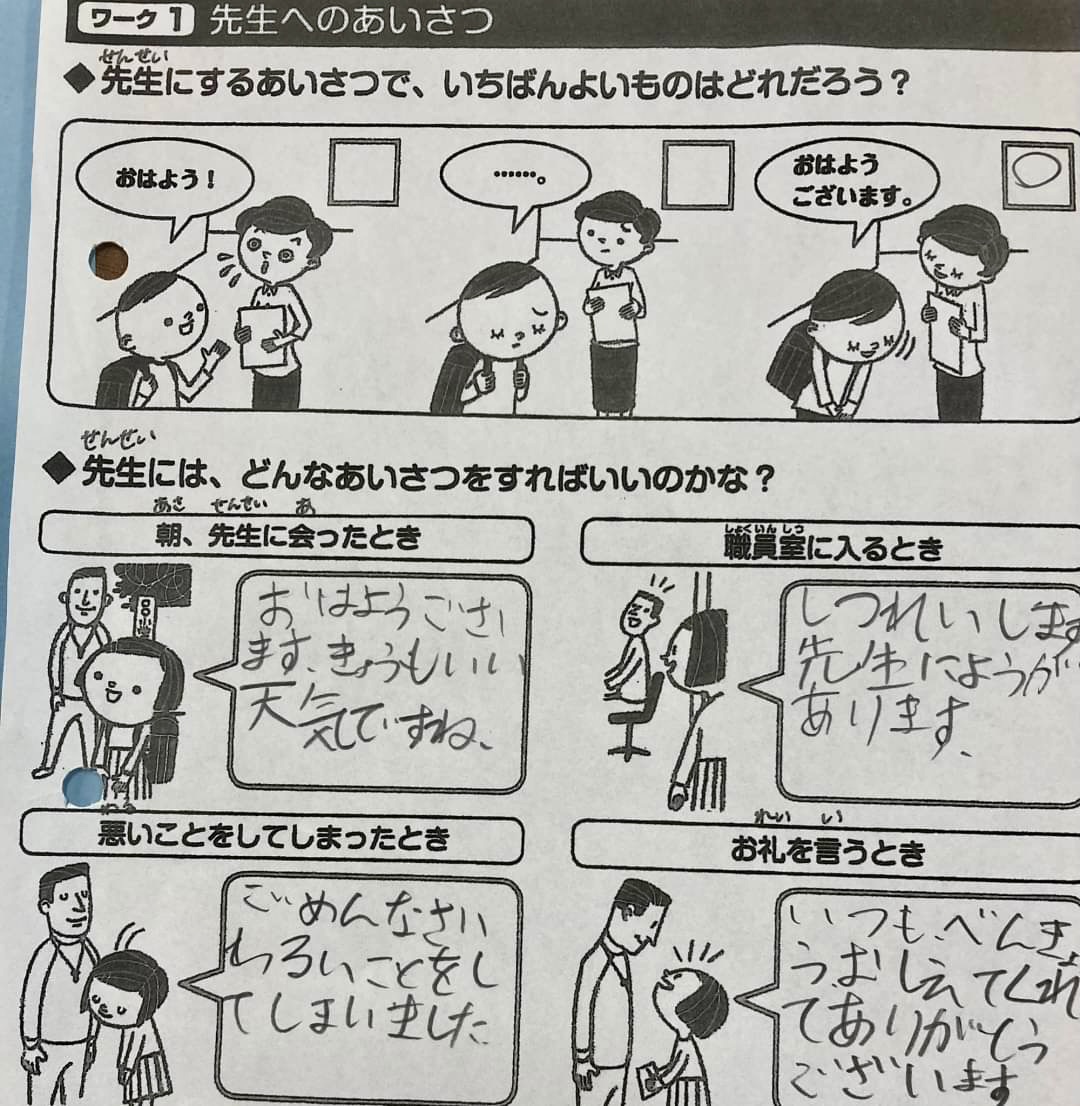 ワーク1 先生へのあいさつ
せんせい
◆先生にするあいさつで、いちばんよいものはどれだろう？
おはよう！
……。
おはよう
ございます。
せんせい
◆先生には、どんなあいさつをすればいいのかな？
あさ せんせい あ
朝、先生に会ったとき
おはようござい
ます、きょうもいい
天気ですね、
しょくいんしつ
職員室に入るとき
しつれいします
先生にようが
あります、
わる
悪いことをしてしまったとき
ごめんなさい
わるいことをし
てしまいました
れい い
お礼を言うとき
いつも、べんきょ
うおしえてくれ
てありがとう
ございます